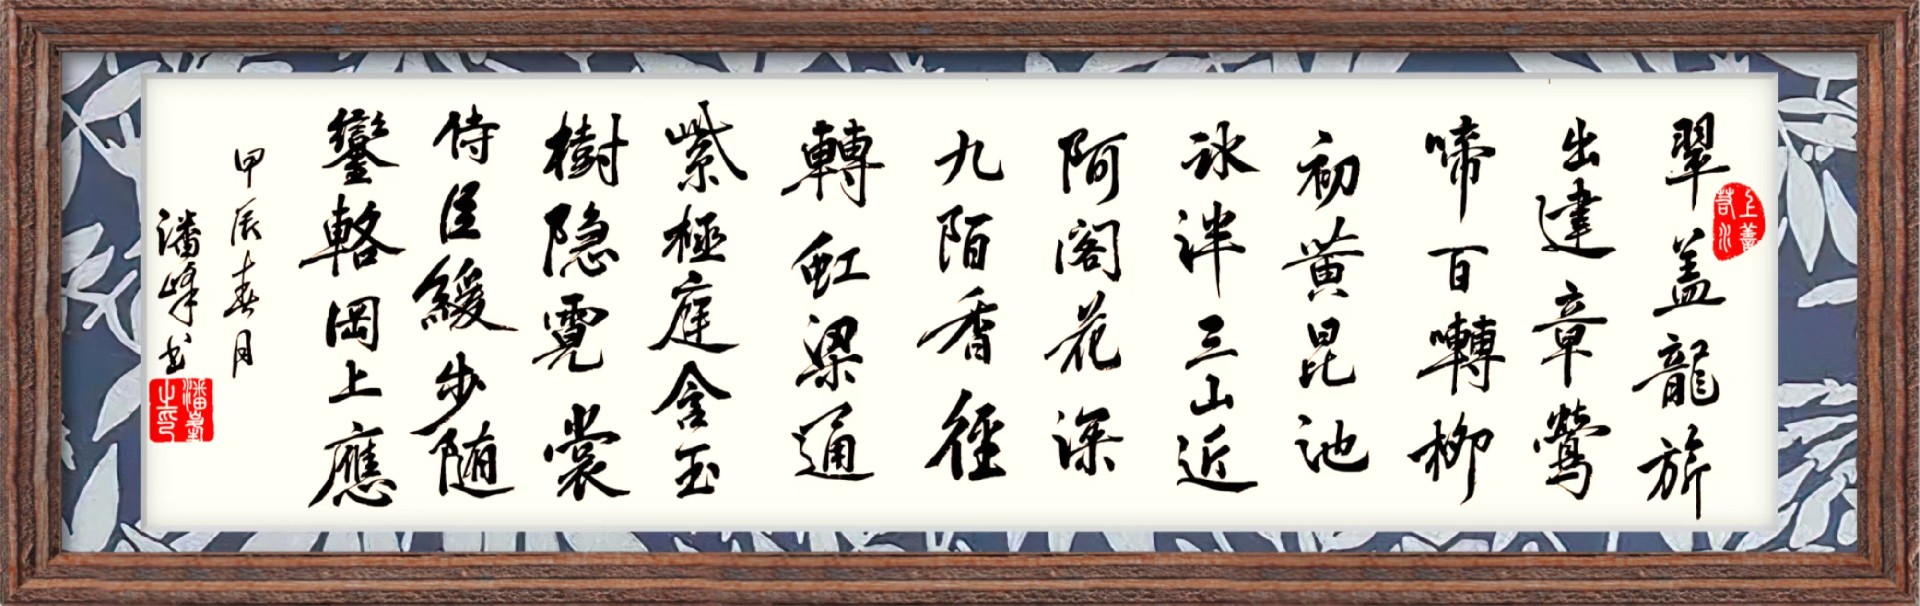 翠盖龍旂
出建章鶯
啼百囀柳
初黄昆池
冰泮三山近
阿閣花深
九陌香徑
轉虹梁通
紫極庭含玉
樹隐霓裳
侍臣緩步随
鑾輅岡上應
甲辰春月
潘峰书
上善若水